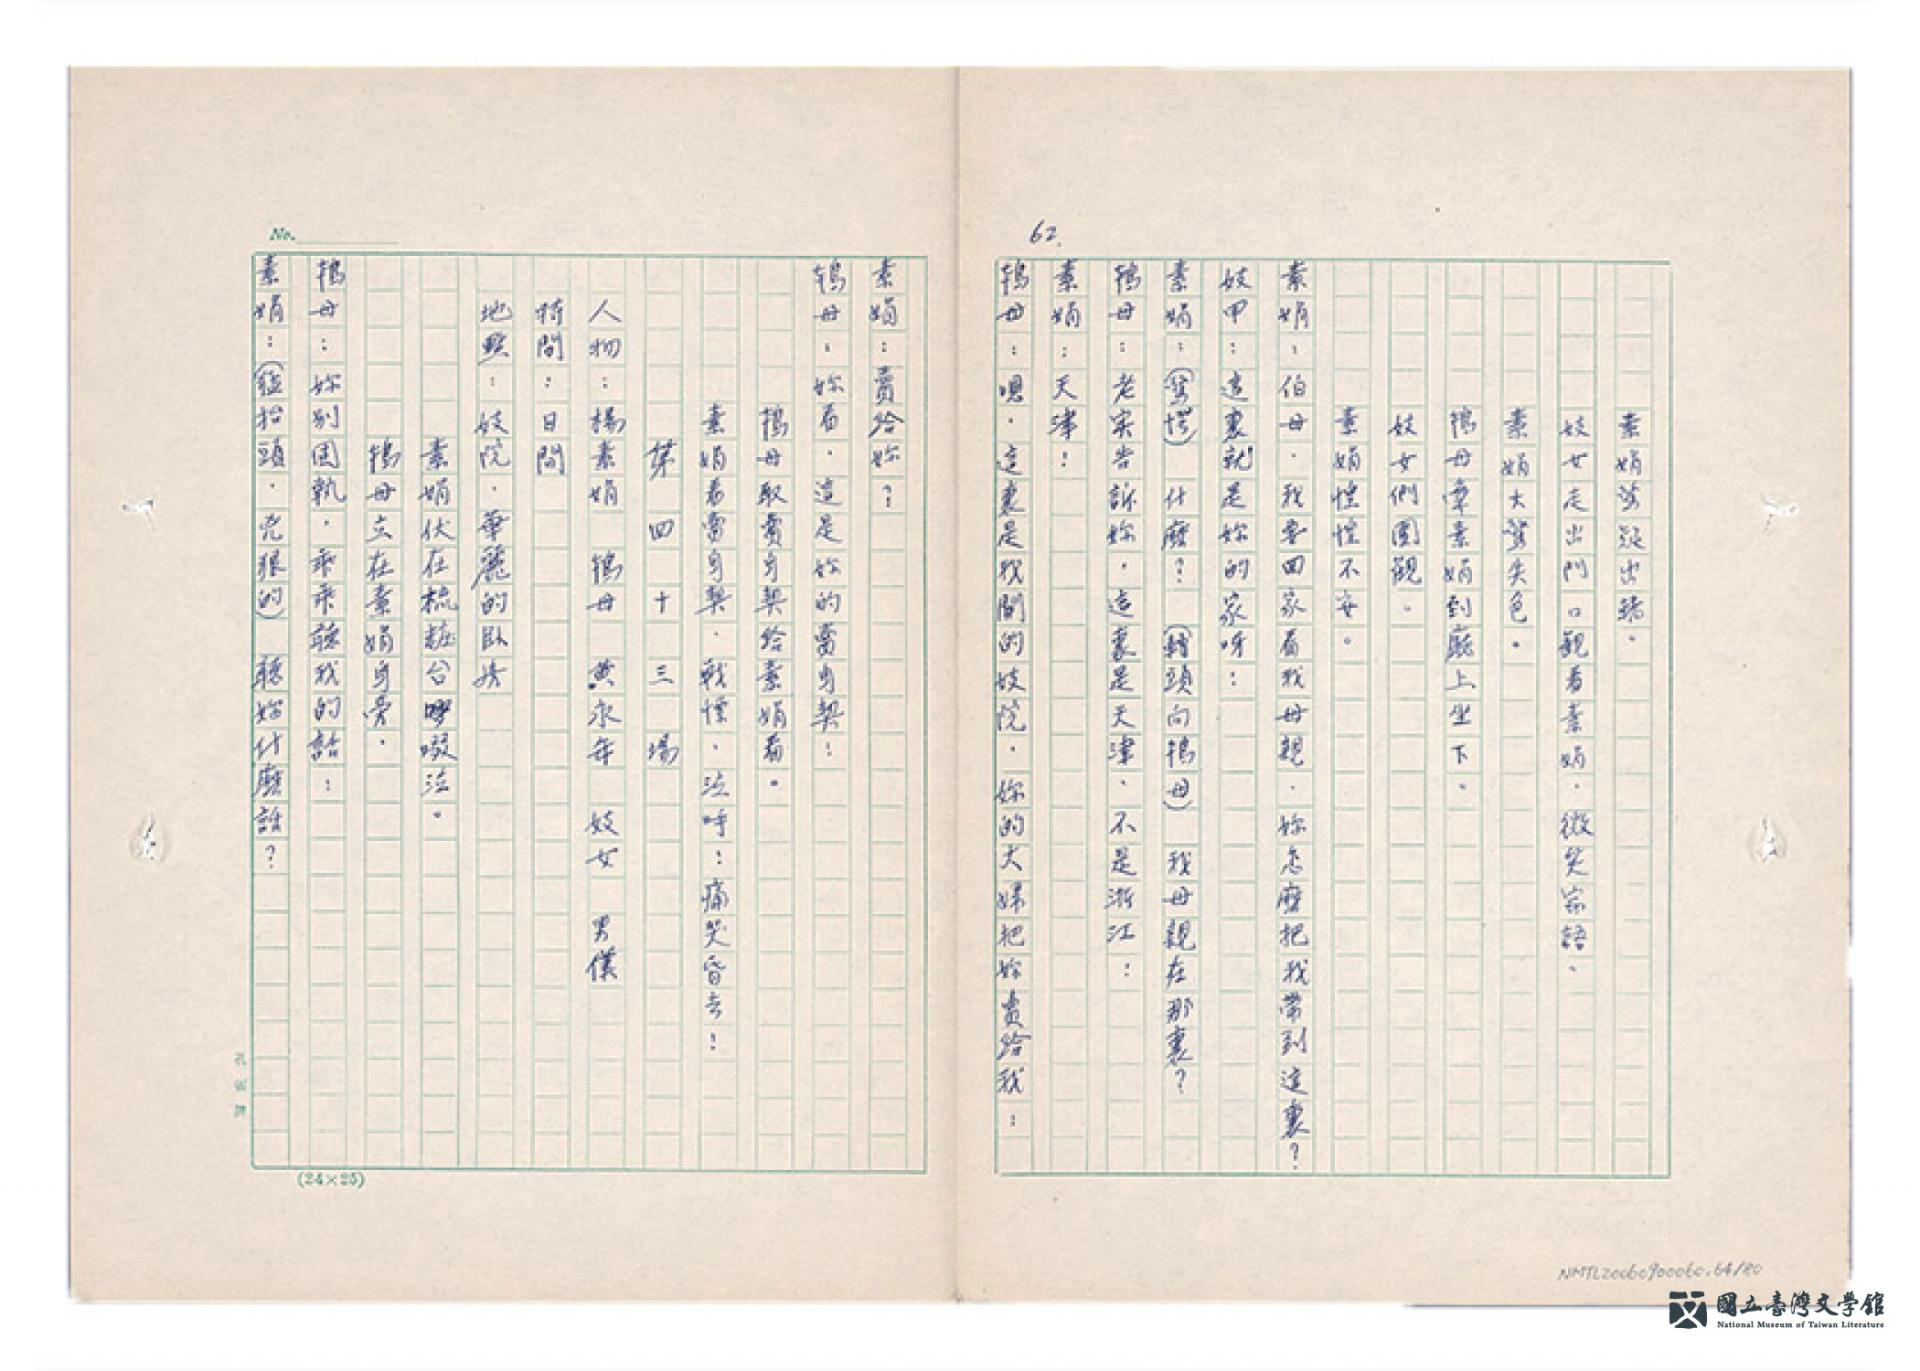 62.
素娟驚疑出轎。
妓女走出門口觀看素娟．微笑宻語．
素娟大驚失色．
鴇母牽素娟到廳上坐下。
妓女們圍觀。
素娟惶惶不安。
素娟：伯母．我要回家看我母親．妳怎麼把我帶到這裏？
妓甲：這裏就是妳的家呀：
素娟：(驚慌)　什麼？　(轉頭向鴇母)　我母親在那裏？
鴇母：老实告訴妳．這裏是天津．不是浙江：
素娟：天津！
鴇母：唄．這裏是我開的妓院．妳的大婦把妳賣給我：
素娟：賣給妳？
鴇母：妳看．這是妳的賣身契：
鴇母取賣身契給素娟看。
素娟看賣身契．戰慄．泣呼：痛哭昏去！
第四十三場
人物：楊素娟　鴇母　黄永年　妓女　男僕
時間：日間
地點：妓院．華麗的臥房
素娟伏在梳粧台啜泣。
鴇母立在素娟身旁．
鴇母：妳别固執．乖乖聽我的話：
素娟：(猛抬頭．兇狠的)　聽妳什麼話？
No.
(24×25)
孔雀牌
NMTL20060900060.64/80
國立臺灣文學館
National Museum of Taiwan Literature